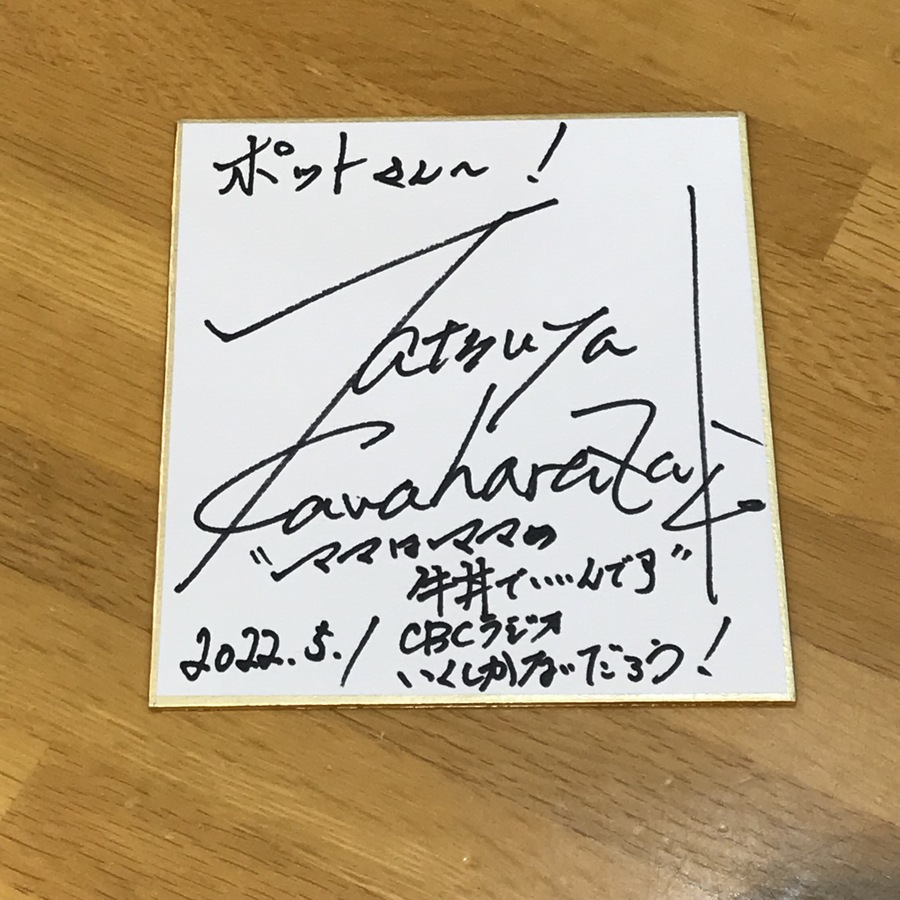 ポットさん〜!
Tatsuya
Kawaharazaki
"ママはママの
牛丼で....んです"
2022.5.1
CBCラジオ
いくしかないだろう!